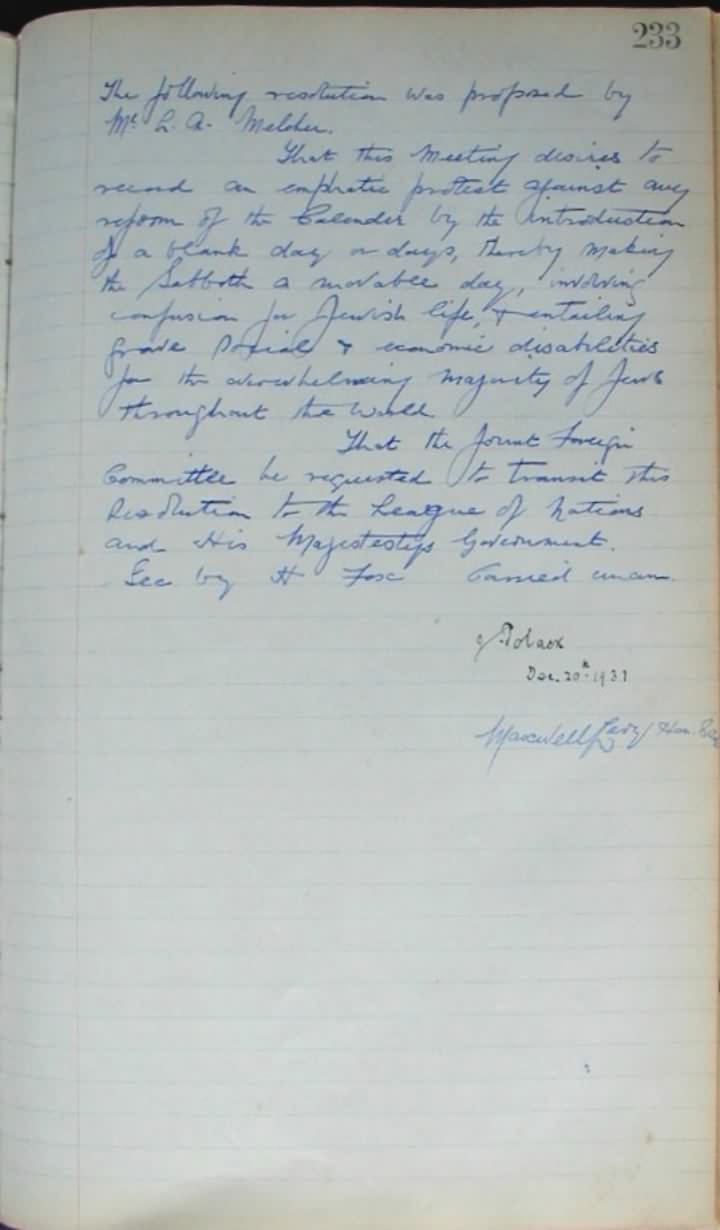 233
The following resolution was proposed by
Mr L. A. Melcher.
That this Meeting desires to
record an emphatic protest against any
reform of the Calender by the introduction
of a blank day or days, thereby making
the Sabbath a movable day, involving
confusion for Jewish life, & entailing
grave Social & economic disabilities
for the overwhelming majority of Jews
throughout the World
That the Joint Foreign
Committee be requested to transit this
Resolution to the League of Nations
and His Majestestys Government.
Sec by H Fox Carried unan.
Polack
Dec. 20th 1931
Maxwell Levy Hon. Sec